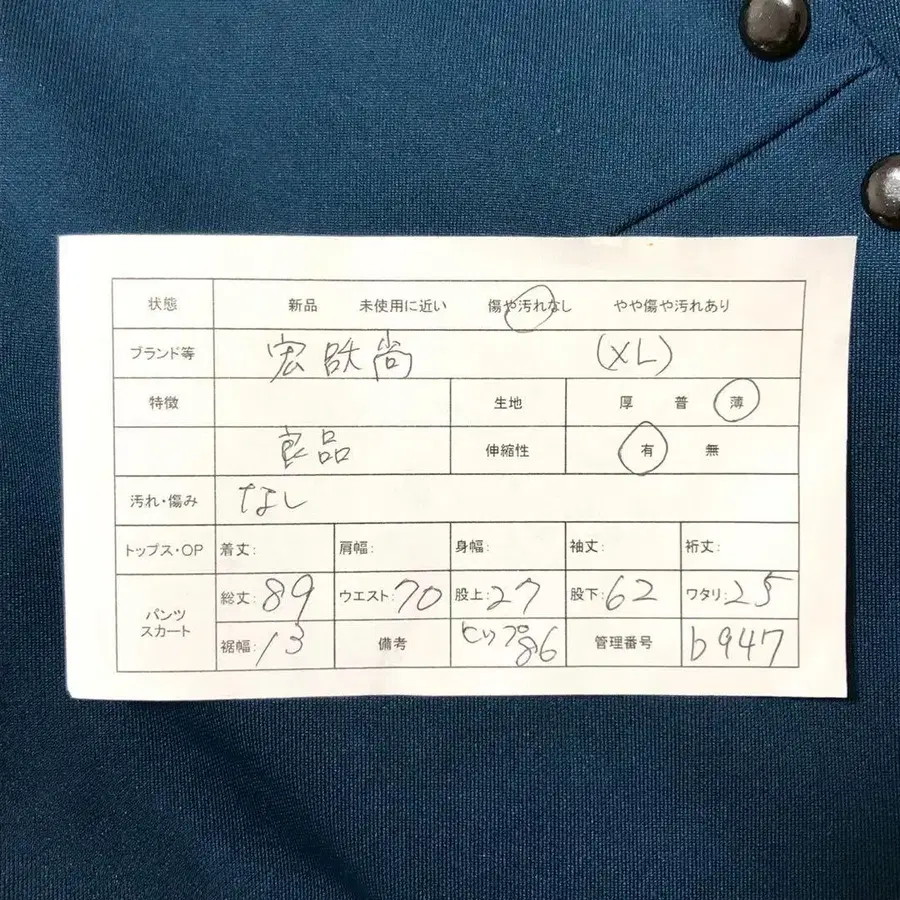 状態 新品 未使用に近い 傷や汚れなし やや傷や汚れあり
ブランド等 宏 尚 (XL)
特徴 生地 厚 普 薄
良品 伸縮性 有 無
汚れ・傷み なし
トップス・OP 着丈: 肩幅: 身幅: 袖丈: 裄丈:
パンツ
スカート
総丈: 89 ウエスト: 70 股上: 27 股下: 62 ワタリ: 25
裾幅: 13 備考 ヒップ86 管理番号 b947